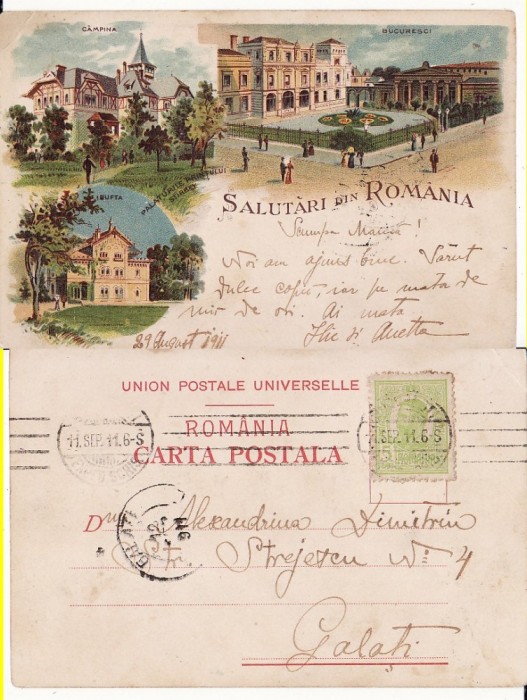 CÂMPINA
BUCURESCI
BUFTA
PALATURILE PRINŢULUI
ŞTIRBEY
SALUTĂRI DIN ROMÂNIA
Scumpa Mamă!
Noi am ajuns bine. Sărut
dulce copii, iar pe mata de
mir de ori. Ai mata
29 August 1911 Ilie si Anetta
UNION POSTALE UNIVERSELLE
ROMÂNIA
CARTA POSTALA
11. SEP. 11. 6-S
11. SEP. 11. 6-S
GALATI
D Alexandrina Dimitriu
Str. Strejescu No: 4
Galati